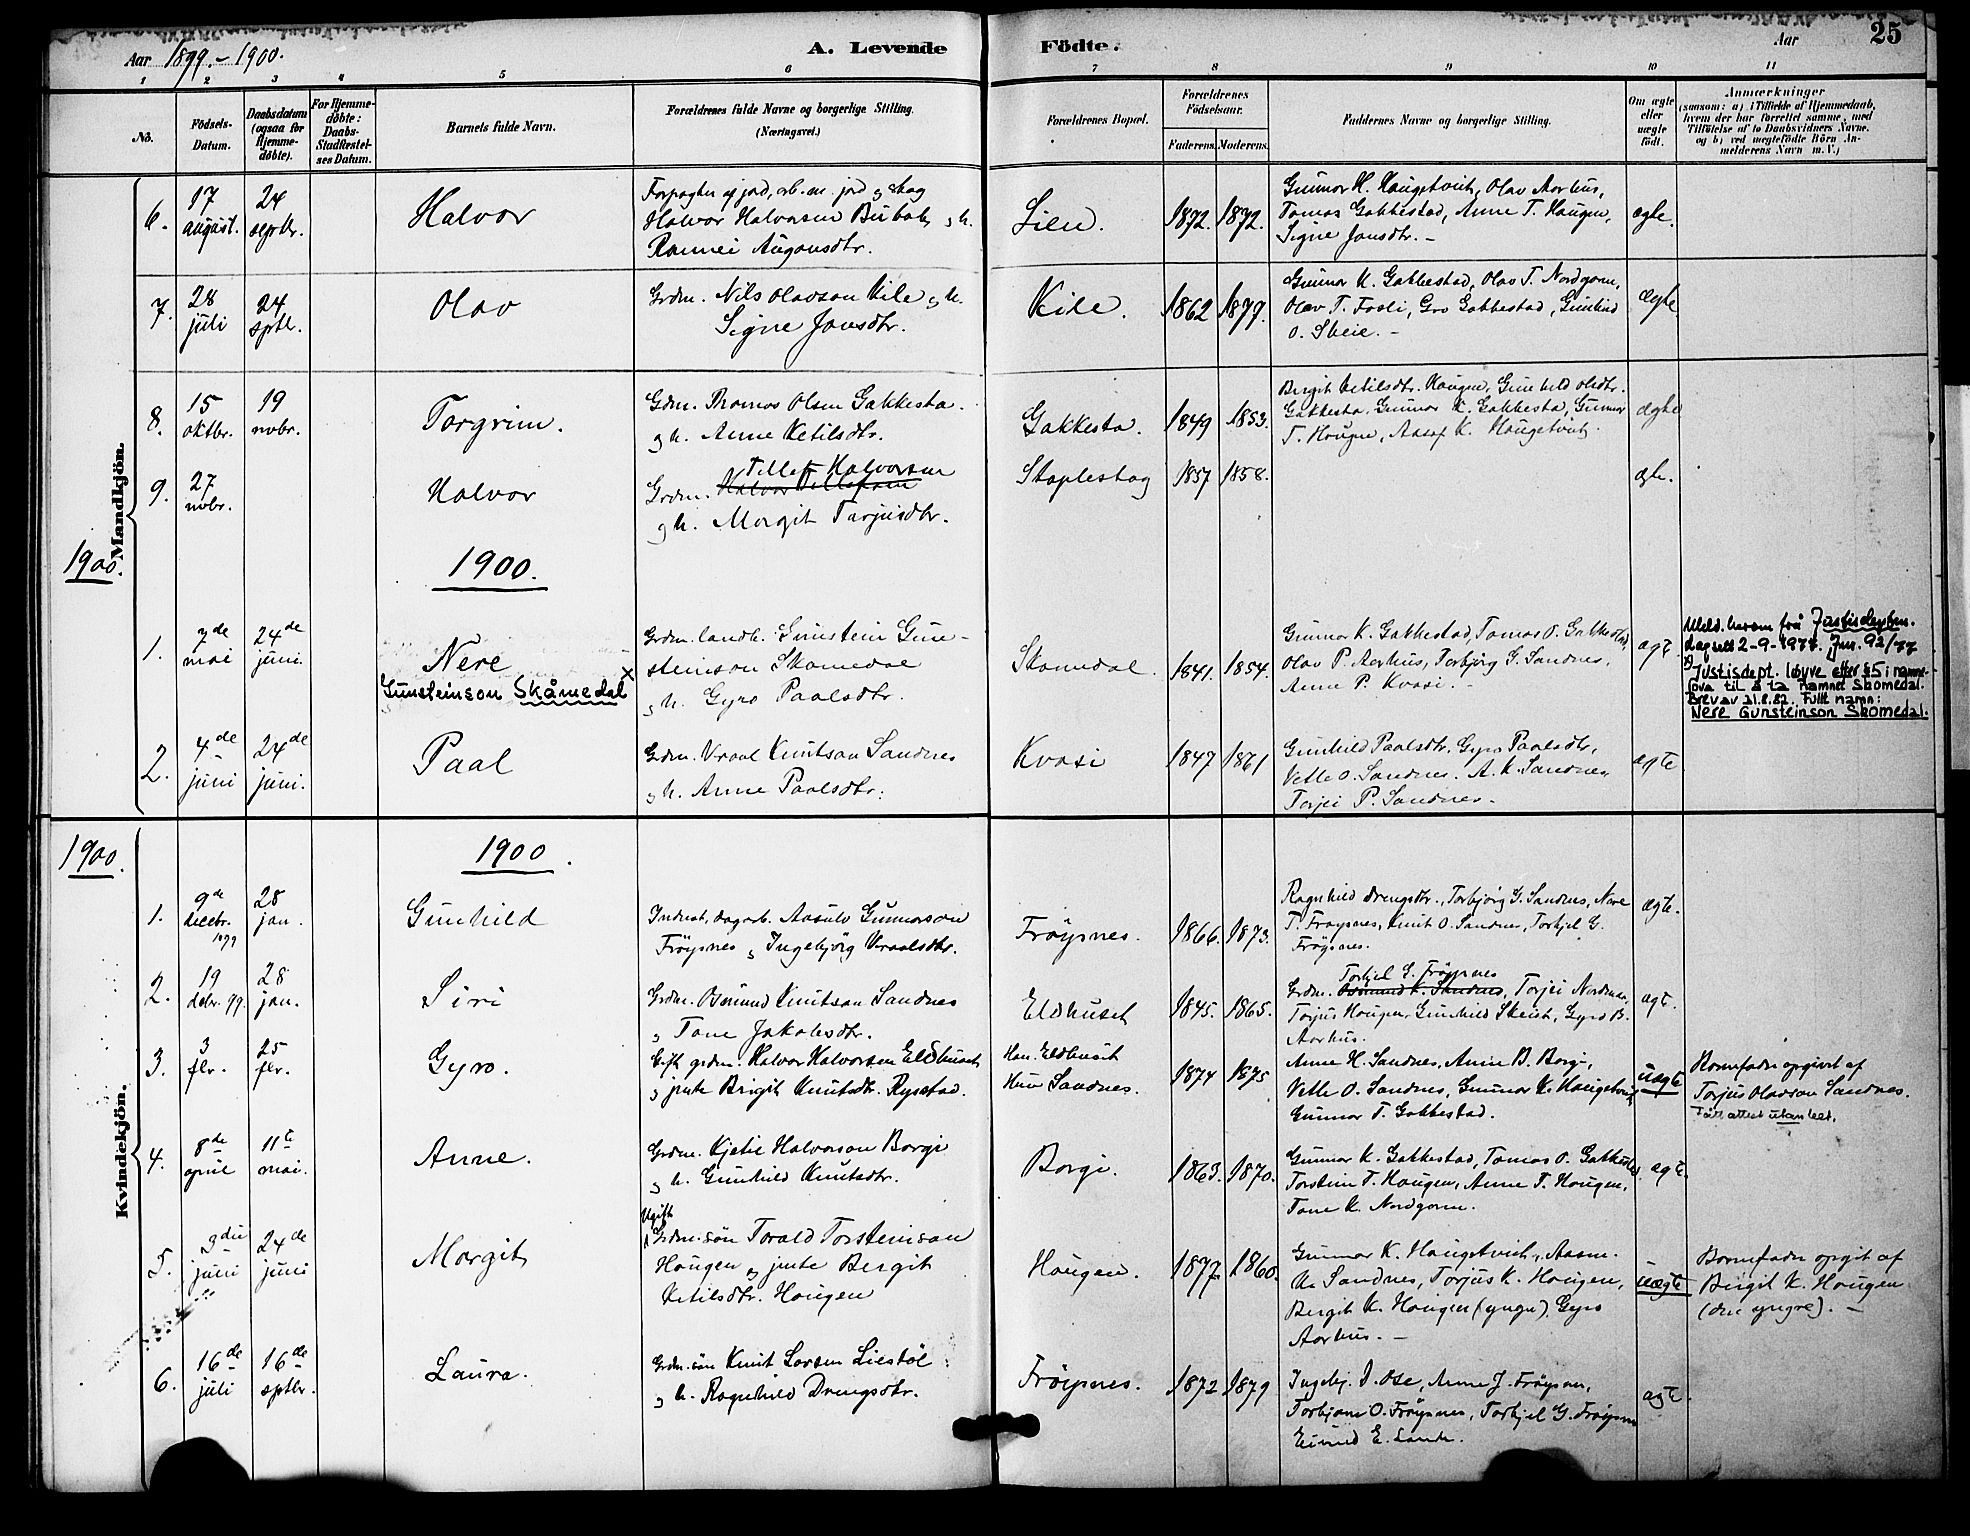 Aar 1899.-1900.
A. Levende Födte.
Aar
25
1 2 3 4 5 6 7 8 9 10 11
No.
Födsels-Datum.
Daabsdatum (ogsaa for Hjemme-döbte).
For Hjemme-döbte: Daabs-Stadfæstel-ses Datum.
Barnets fulde Navn.
Forældrenes fulde Navne og borgerlige Stilling.
(Næringsvei.)
Forældrenes Bopæl.
Forældrenes Födselsaar.
Faderens. Moderens.
Faddernes Navne og borgerlige Stilling.
Om ægte eller uægte födt.
Anmærkninger
(saasom: a) i Tilfælde af Hjemmedaab, hvem der har forrettet samme, med Tilföielse af to Daabsvidners Navne, og b) ved uægtefödte Börn Anmelderens Navn m. V.)
Mandkjön.
6. 17 august. 24 septbr. Halvor
Forpagter af jord, arb. m. jord og skog
Halvor Halvorsen og h.
Rannei Augonsdtr.
Lien. 1872. 1872.
Gunnar H. Haugetveit, Olav Aarhus,
Tomas Gakkestad, Anne T. Haugen,
Signe Jonsdtr. -
ægte.
7. 28 juli 24 sptb. Olav
Grdm. Nils Olavson Kile og h.
Signe Jonsdtr.
Kile. 1862 1877.
Gunnar K. Gakkestad, Olav T. Nordgaren,
Olav T. Fosli, Gro Gakkestad, Gunhild
O. Skeie. -
ægte
8. 15 oktbr. 19 novbr. Torgrim.
Grdm. Thomas Olsen Gakkesta.
og h. Anne Ketilsdtr.
Gakkesta. 1849 1853.
Birgit Ketilsdtr. Haugen, Gunhild Olsdtr.
Gakkesta, Gunnar K. Gakkesta, Gunnar
T. Haugen, Aasof K. Haugetveit.
ægte
9. 27 novbr. Halvor
Tillef Halvorsen
Grdm. Halvor Tillefsen
og h. Morgit Tarjeisdtr.
Staplestog 1857 1858. ægte.
1900. 1900.
1. 7de mai 24de juni. Nere
Gunsteinson Skåmedal x
Grdm. landh. Gunstein Gun-
steinson Skomedal
og h. Gyro Paalsdtr.
Skomedal. 1841. 1854.
Gunnar K. Gakkestad, Tomas O. Gakkestad,
Olav P. Aarhus, Torbjörg G. Sandnes,
Anne P. Kvasi. -
ægte
Meld. herom frå Justisdeptem.
dagsett 2-9-1977. Jnr. 92/77
x) Justisdept. löyve etter §5 i namne-
lova til å ta namnet Skomedal.
Brev av 31.8.82. Fullt namn:
Nere Gunsteinson Skomedal.
2. 4de juni 24de juni. Paal
Grdm. Vraal Knutson Sandnes
og h. Anne Paalsdtr.
Kvasi 1847 1861
Gunhild Paalsdtr, Gyro Paalsdtr,
Vetle O. Sandnes, A. K. Sandnes,
Torjei P. Sandnes.
ægte
Kvindekjön.
1900. 1900.
1. 9de decbr. 1899 28 jan. Gunhild
Industr. dagarb. Aasulv Gunnarson
Fröysnes og Ingebjörg Vraalsdtr.
Fröysnes. 1866. 1873.
Ragnhild Drengsdtr., Torbjörg G. Sandnes, Nere
T. Fröysnes, Knut O. Sandnes, Torkjel G.
Fröysnes.
ægte.
2. 19 debr. 99. 28 jan. Siri
Grdm. Osmund Knutson Sandnes
og Tone Jakobsdtr.
Eldhuset 1845. 1865.
Torkjel G. Fröysnes
Grdm. Osmund K. Sandnes, Torjei Nordenaa,
Torjus Haugen, Gunhild, Gyro B.
Aarhus.
ægte.
3. 3 fbr. 25 fbr. Gyro.
Gift grdm. Halvor Halvorsen Eldhuset
og jente Birgit Knutsdtr. Rysstad.
Han. Eldhuset
Hun Sandnes. 1874 1875
Anne H. Sandnes, Anne B. Borgi,
Vetle O. Sandnes, Gunnar K. Haugetveit
Gunnar T. Gakkestad.
uægte
Barnefader opgivet af
Torjus Olavson Sandnes.
Fått attest utan left.
4. 8de april 11te mai. Anne.
Grdm. Kjetil Halvorson Borgi
og h. Gunhild Knutsdtr.
Borgi. 1863. 1870.
Gunnar K. Gakkestad, Tomas O. Gakkestad,
Torstein T. Haugen, Anne T. Haugen,
Tone K. Nordgaren.
ægte.
5. 3die juni 24de juni Morgit
Ugift
Grdm. sön Torald Torsteinson
Haugen og jente Bergit
Ketilsdtr. Haugen
Haugen. 1877. 1860.
Gunnar K. Haugetveit, Aasm.
K. Sandnes, Torjus K. Haugen,
Bergit K. Haugen (yngre), Gyro
Aarhus. -
uægte
Barnefader opgit af
Birgit K. Haugen
(den yngre). -
6. 16de juli 16de sptbr. Laura.
Grdm. sön Knut Larsen Liestöl
og h. Ragnhild Drengsdtr.
Fröysnes. 1872 1879
Ingebj. D. Ose, Anne J. Fröysnes,
Torbjörn O. Fröysnes, Torkjel G. Fröysnes
Eivind E.
ægte.